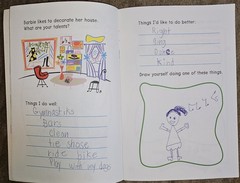 Barbie likes to decorate her house.
What are your talents?
Things I do well:
Gymnastiks
Bars
Clean
tie shose
ride bike
Play with my dog
Things I'd like to do better:
Kind
Draw yourself doing one of these things.